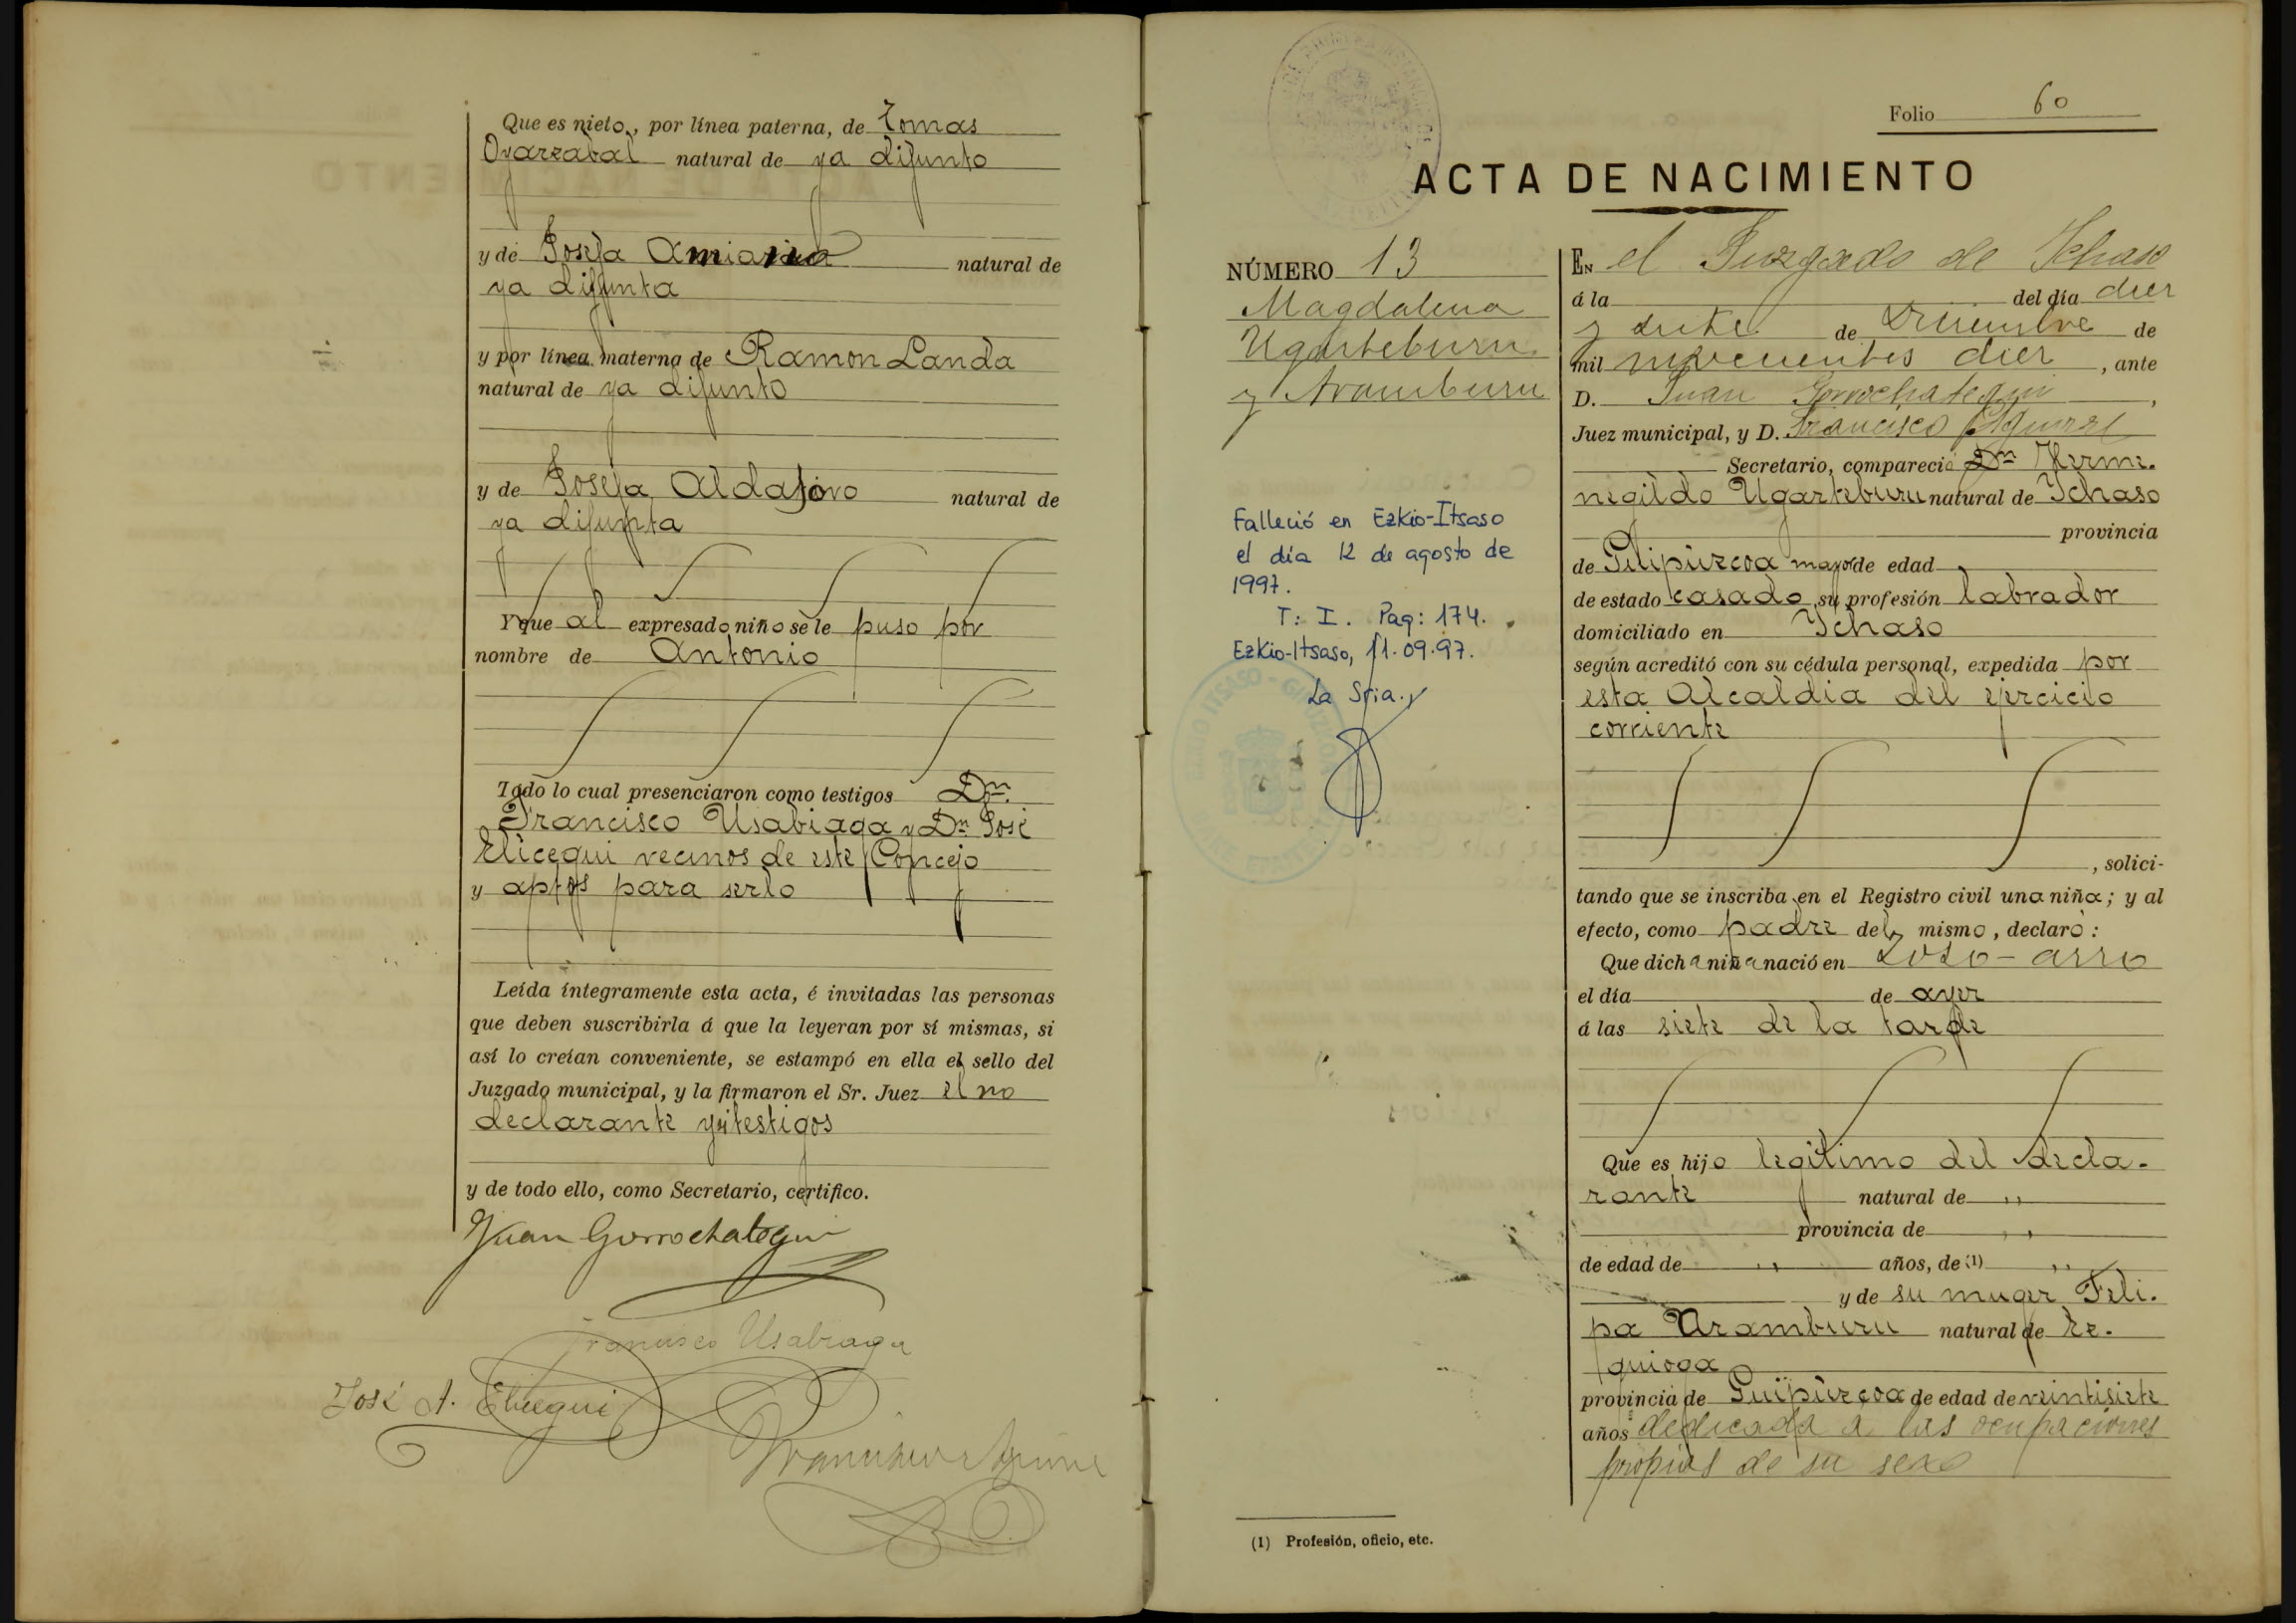 Que es nieto, por línea paterna, de Tomas
Oyarzabal natural de ya difunto
y de Josefa Amiania natural de
ya difunta
y por línea materna de Ramon Landa
natural de ya difunto
y de Josefa Aldasoro natural de
ya difunta
Y que al expresado niño se le puso por
nombre de Antonio
Todo lo cual presenciaron como testigos Dn.
Francisco Usabiaga y Dn José
Elicegui vecinos de este Concejo
y aptos para serlo
Leída íntegramente esta acta, é invitadas las personas
que deben suscribirla á que la leyeran por sí mismas, si
así lo creían conveniente, se estampó en ella el sello del
Juzgado municipal, y la firmaron el Sr. Juez el no
declarante y testigos
y de todo ello, como Secretario, certifico.
Juan Gorrochategui
Francisco Usabiaga
José A. Elicegui
Francisco Aguirre
Folio 60
ACTA DE NACIMIENTO
NÚMERO 13
Magdalena
Ugarteburu
y Aramburu
Falleció en Ezkio-Itsaso
el día 12 de agosto de
1997.
T: I. Pag: 174.
Ezkio-Itsaso, 11.09.97.
La Sria.
EN el Juzgado de Ichaso
á la del día diez
y siete de Diciembre de
mil novecientos diez, ante
D. Juan Gorrochategui,
Juez municipal, y D. Francisco Aguirre
Secretario, compareció Dn Herme-
negildo Ugarteburu natural de Ichaso
provincia
de Guipúzcoa mayor de edad
de estado casado su profesión labrador
domiciliado en Ichaso
según acreditó con su cédula personal, expedida por
esta Alcaldia del ejercicio
corriente
, solici-
tando que se inscriba en el Registro civil una niña; y al
efecto, como padre del mismo, declaró:
Que dicha niña nació en Loso-arro
el día de ayer
á las siete de la tarde
Que es hijo legitimo del decla-
rante natural de "
provincia de "
de edad de " años, de (1) "
y de su muger Feli-
pa Aramburu natural de Ez-
quioga
provincia de Guipúzcoa de edad de veintisiete
años dedicada á las ocupaciones
propias de su sexo
(1) Profesión, oficio, etc.